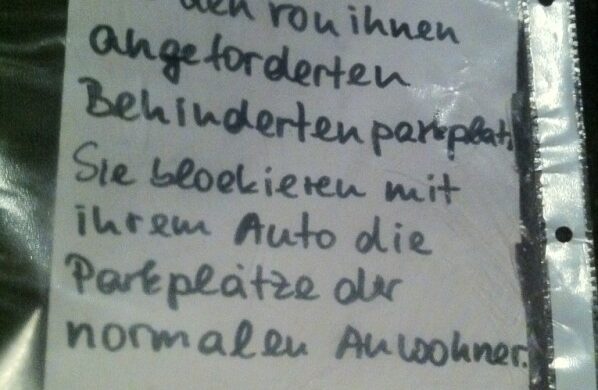 den von ihnen
angeforderten
Behindertenparkplatz
Sie blockieren mit
ihrem Auto die
Parkplätze der
normalen Anwohner.